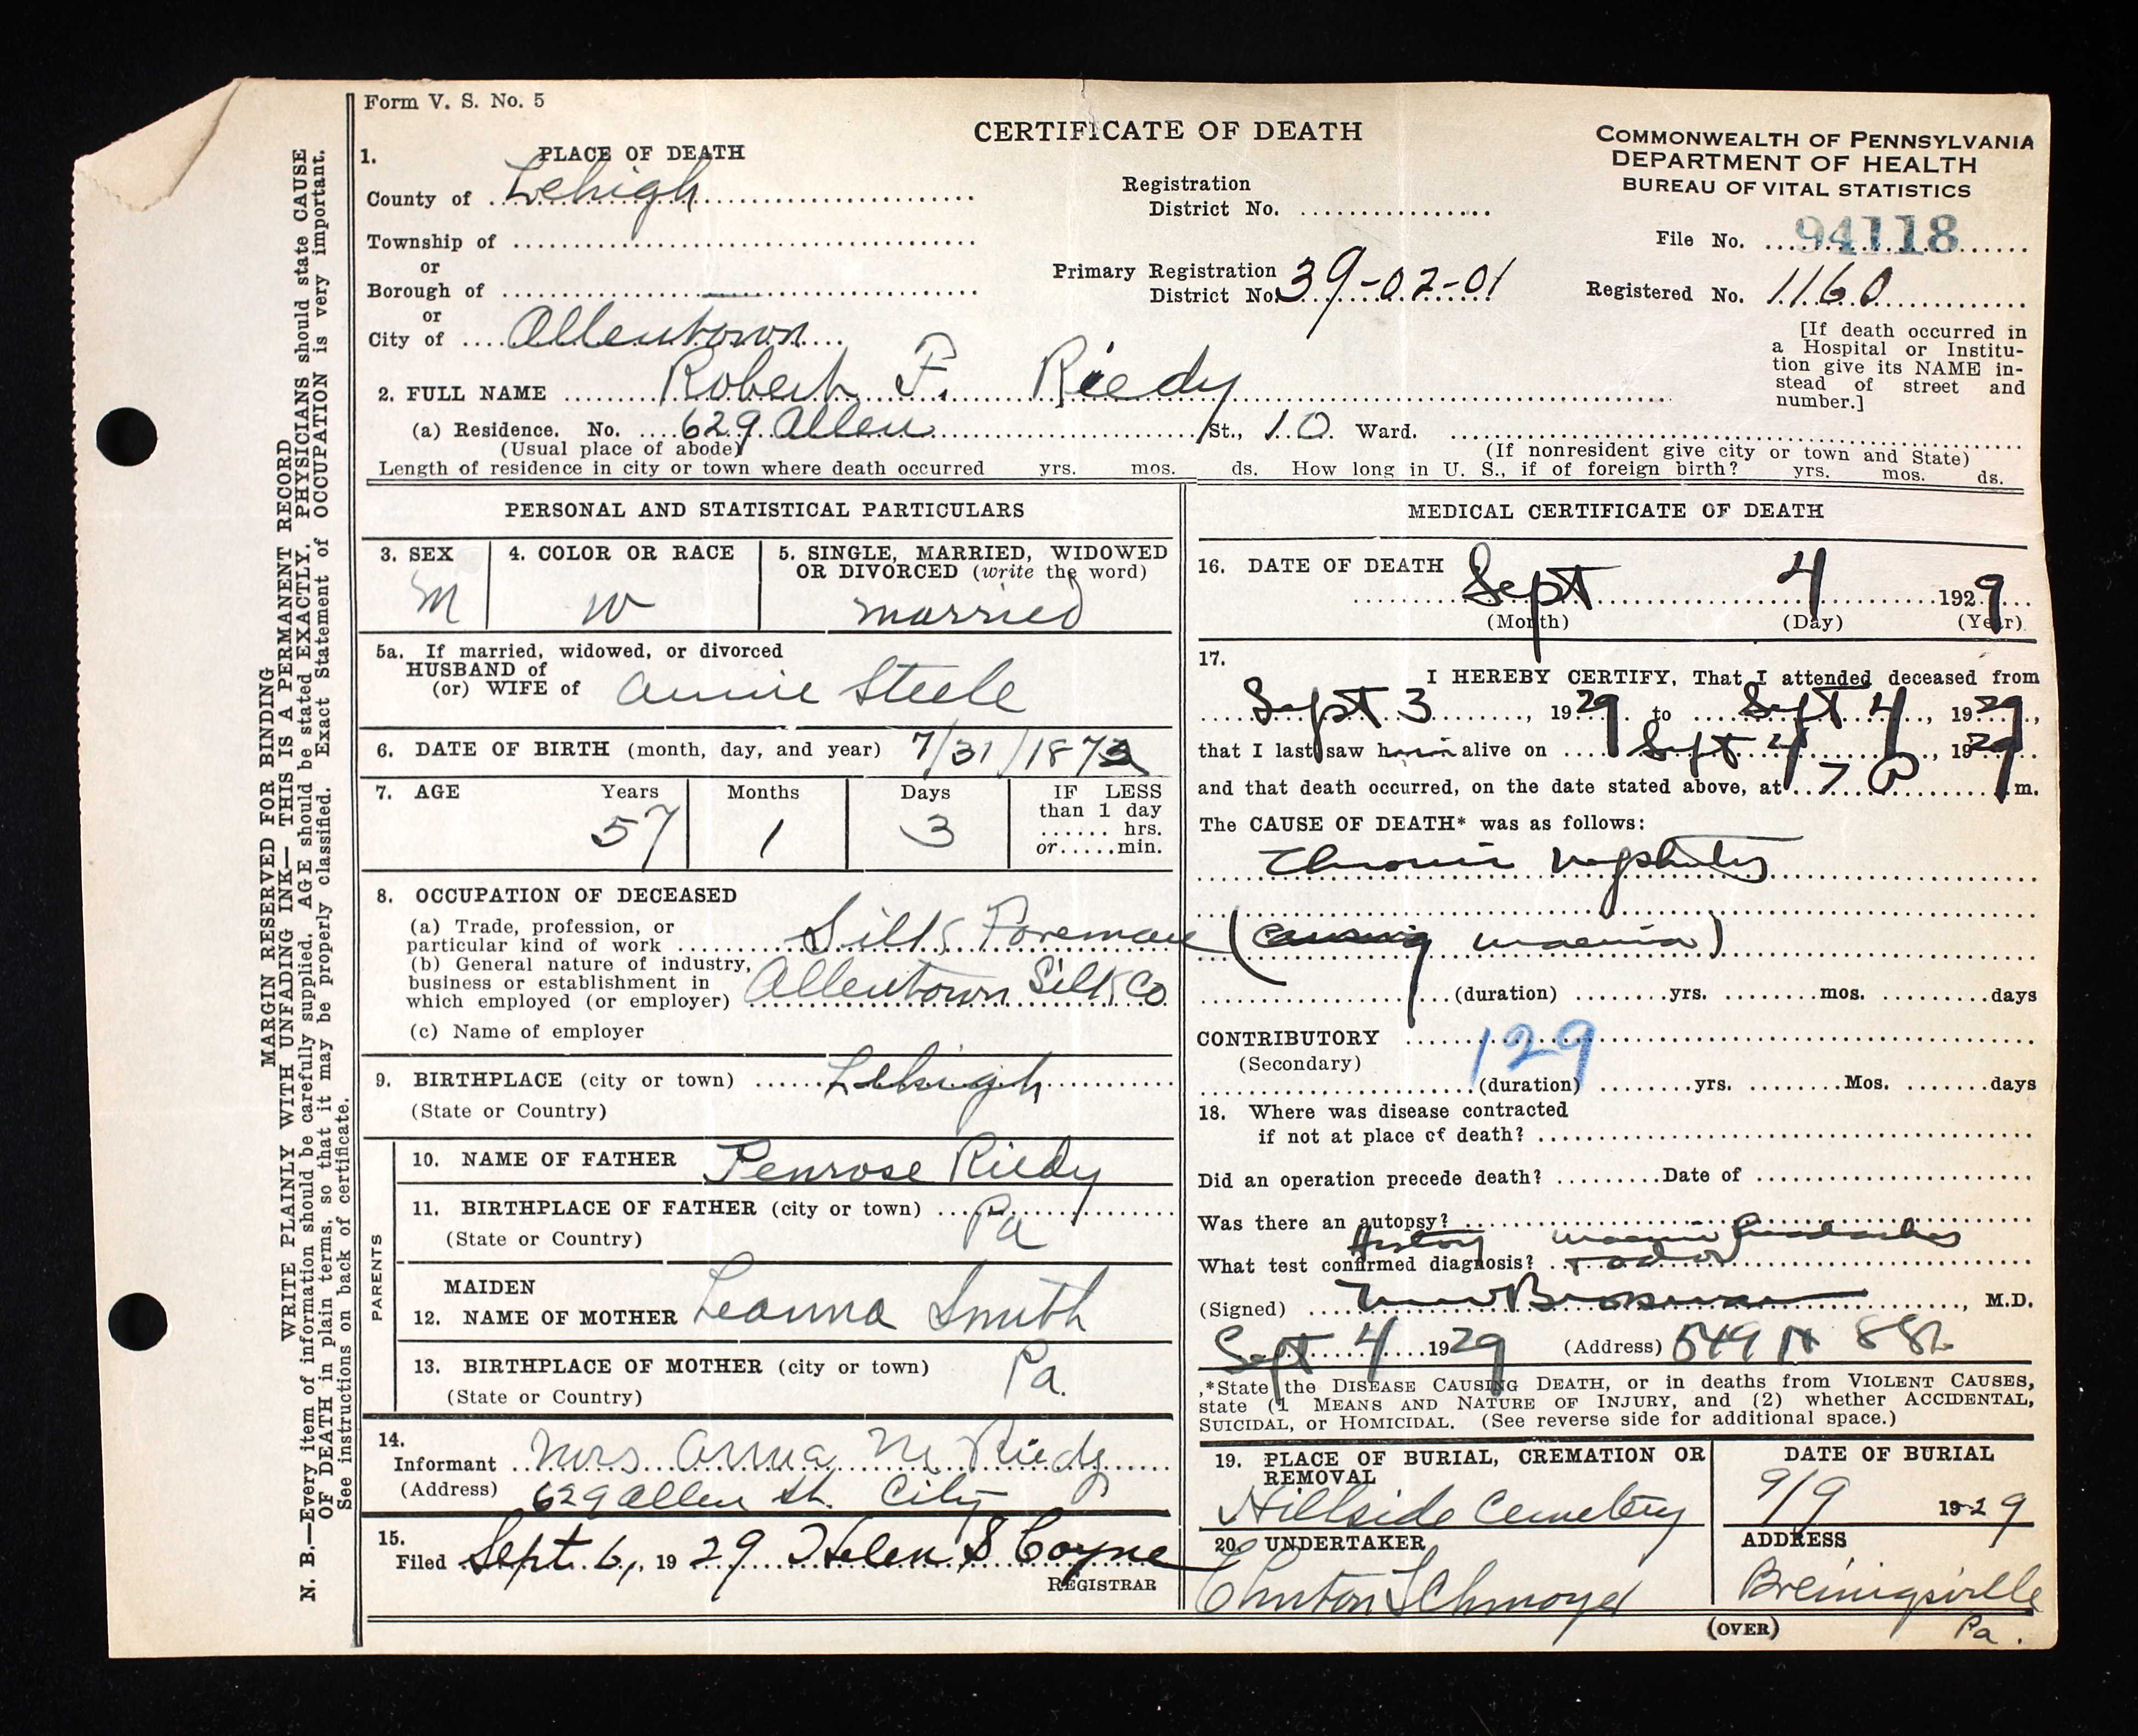 Form V. S. No. 5
CERTIFICATE OF DEATH
COMMONWEALTH OF PENNSYLVANIA
DEPARTMENT OF HEALTH
BUREAU OF VITAL STATISTICS
1. PLACE OF DEATH
County of Lehigh
Township of
or
Borough of
or
City of Allentown
Registration
District No.
Primary Registration
District No. 39-02-01
File No. 94118
Registered No. 1160
[If death occurred in
a Hospital or Institu-
tion give its NAME in-
stead of street and
number.]
2. FULL NAME Robert F. Riedy
(a) Residence. No. 629 Allen St., 10 Ward.
(Usual place of abode) (If nonresident give city or town and State)
Length of residence in city or town where death occurred yrs. mos. ds. How long in U. S., if of foreign birth? yrs. mos. ds.
PERSONAL AND STATISTICAL PARTICULARS
3. SEX
M
4. COLOR OR RACE
W
5. SINGLE, MARRIED, WIDOWED
OR DIVORCED (write the word)
married
5a. If married, widowed, or divorced
HUSBAND of
(or) WIFE of Annie Steele
6. DATE OF BIRTH (month, day, and year) 7/31/1872
7. AGE Years Months Days IF LESS
than 1 day
57 1 3 ...... hrs.
or.....min.
8. OCCUPATION OF DECEASED
(a) Trade, profession, or
particular kind of work Silk Foreman
(b) General nature of industry,
business or establishment in
which employed (or employer) Allentown Silk Co
(c) Name of employer
9. BIRTHPLACE (city or town) Lehigh
(State or Country)
PARENTS
10. NAME OF FATHER Penrose Riedy
11. BIRTHPLACE OF FATHER (city or town) Pa
(State or Country)
MAIDEN
12. NAME OF MOTHER Leanna Smith
13. BIRTHPLACE OF MOTHER (city or town) Pa.
(State or Country)
14.
Informant Mrs Anna M Riedy
(Address) 629 Allen St. City
15.
Filed Sept. 6, 1929 Helen S Coyne
REGISTRAR
MEDICAL CERTIFICATE OF DEATH
16. DATE OF DEATH
Sept 4 1929
(Month) (Day) (Year)
17.
I HEREBY CERTIFY, That I attended deceased from
Sept 3, 1929 to Sept 4, 1929,
that I last saw him alive on Sept 4, 1929
and that death occurred, on the date stated above, at 7 P m.
The CAUSE OF DEATH* was as follows:
Chronic Nephritis
(causing uraemia)
(duration) yrs. mos. days
CONTRIBUTORY 129
(Secondary)
(duration) yrs. Mos. days
18. Where was disease contracted
if not at place of death?
Did an operation precede death? Date of
Was there an autopsy?
History uraemic headaches
What test confirmed diagnosis? + odor
(Signed) , M.D.
Sept 4 1929 (Address) 549 N 8th
*State the DISEASE CAUSING DEATH, or in deaths from VIOLENT CAUSES,
state (1 MEANS AND NATURE OF INJURY, and (2) whether ACCIDENTAL,
SUICIDAL, or HOMICIDAL. (See reverse side for additional space.)
19. PLACE OF BURIAL, CREMATION OR
REMOVAL
Hillside Cemetery
DATE OF BURIAL
9/9 1929
20. UNDERTAKER
Clinton Schmoyer
ADDRESS
Breinigsville
Pa.
(OVER)
MARGIN RESERVED FOR BINDING
WRITE PLAINLY WITH UNFADING INK— THIS IS A PERMANENT RECORD
N. B.—Every item of information should be carefully supplied. AGE should be stated EXACTLY. PHYSICIANS should state CAUSE
OF DEATH in plain terms, so that it may be properly classified. Exact Statement of OCCUPATION is very important.
See instructions on back of certificate.